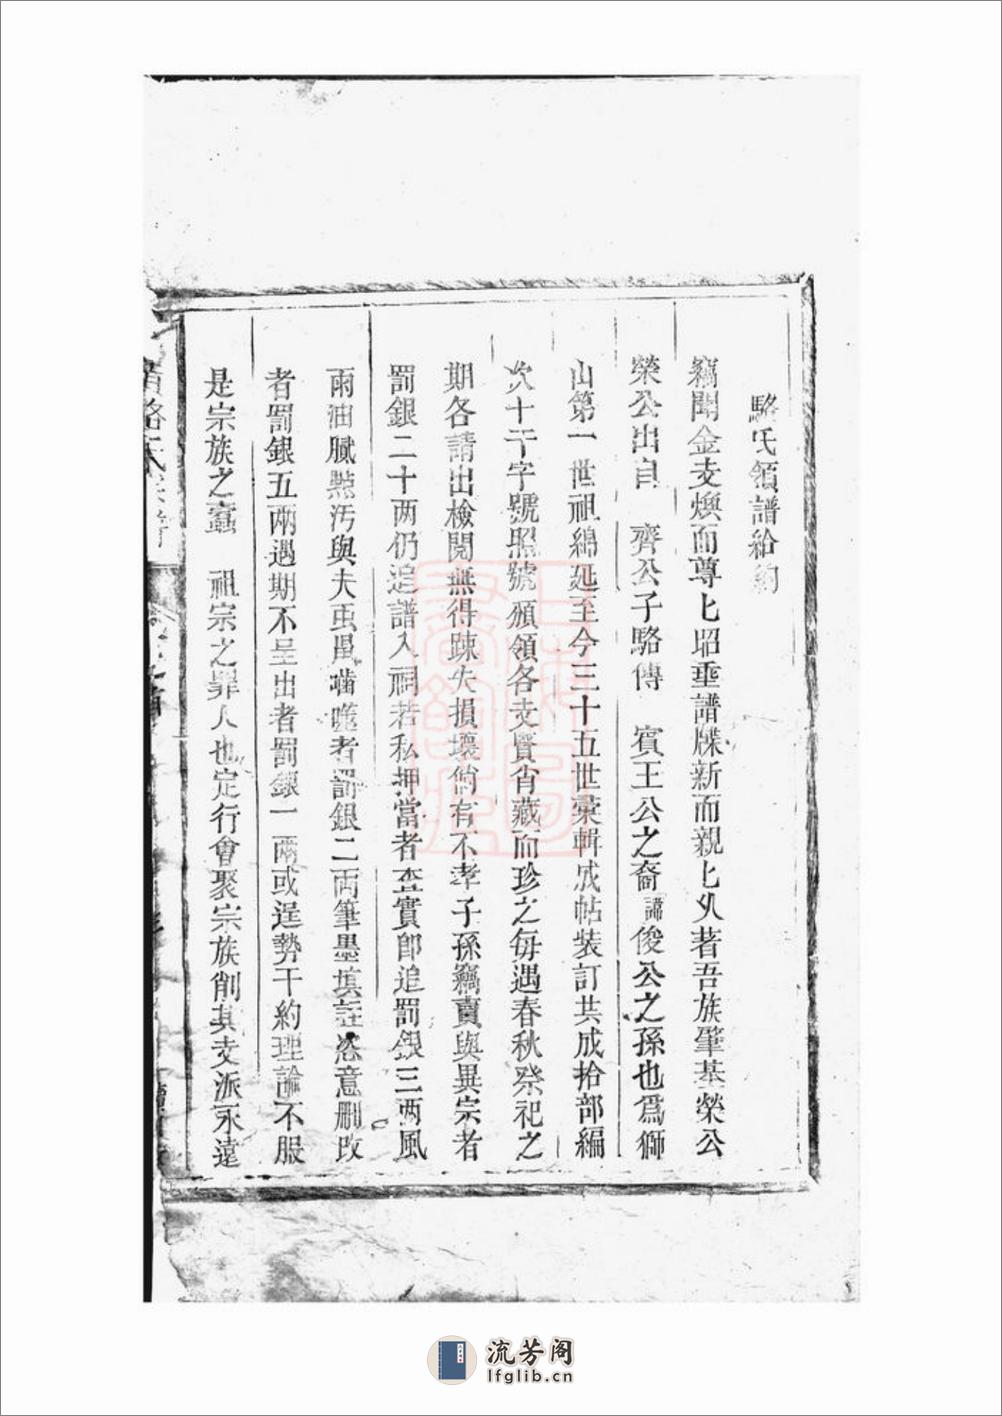 駱氏領譜給約
竊聞金支煥而尊匕昭垂譜牒新而親匕乆著吾族肇基榮公
榮公出自 齊公子駱傳 賓王公之裔諱俊公之孫也爲獅
山第一世祖綿延至今三十五世彙輯成帖裝訂共成拾部編
次十干字號照號頒領各支賢肖藏而珍之每遇春秋祭祀之
期各請出檢閱無得踈失損壞倘有不孝子孫竊賣與異宗者
罰銀二十两仍追譜入祠若私押當者查實卽追罰銀三两風
雨油膩㸃汚與夫虫鼠嚙壞者罰銀二両筆墨填註恣意删改
者罰銀五两遇期不呈出者罰銀一兩或逞勢干約理論不服
是宗族之蠹 祖宗之罪人也定行會聚宗族削其支派永遠
駱氏宗譜
流芳阁
lfglib.cn